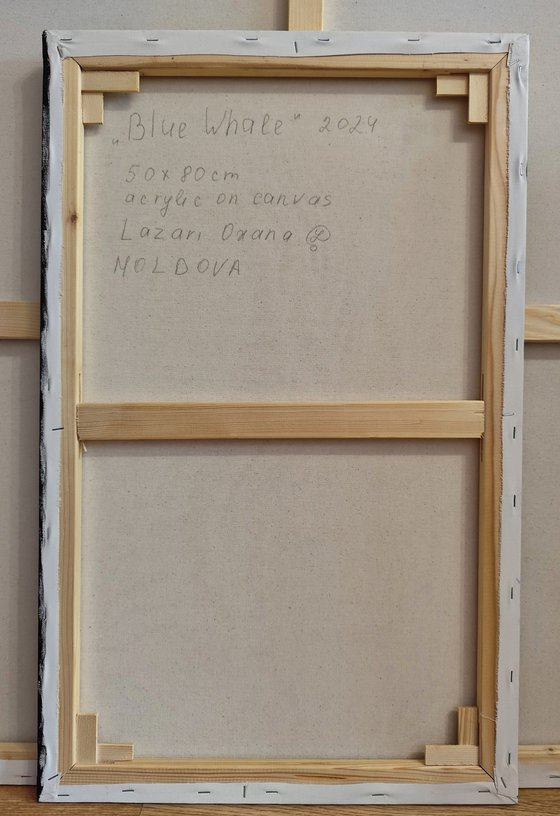 „Blue Whale“ 2024
50 x 80 cm
acrylic on canvas
Lazari Oxana
MOLDOVA